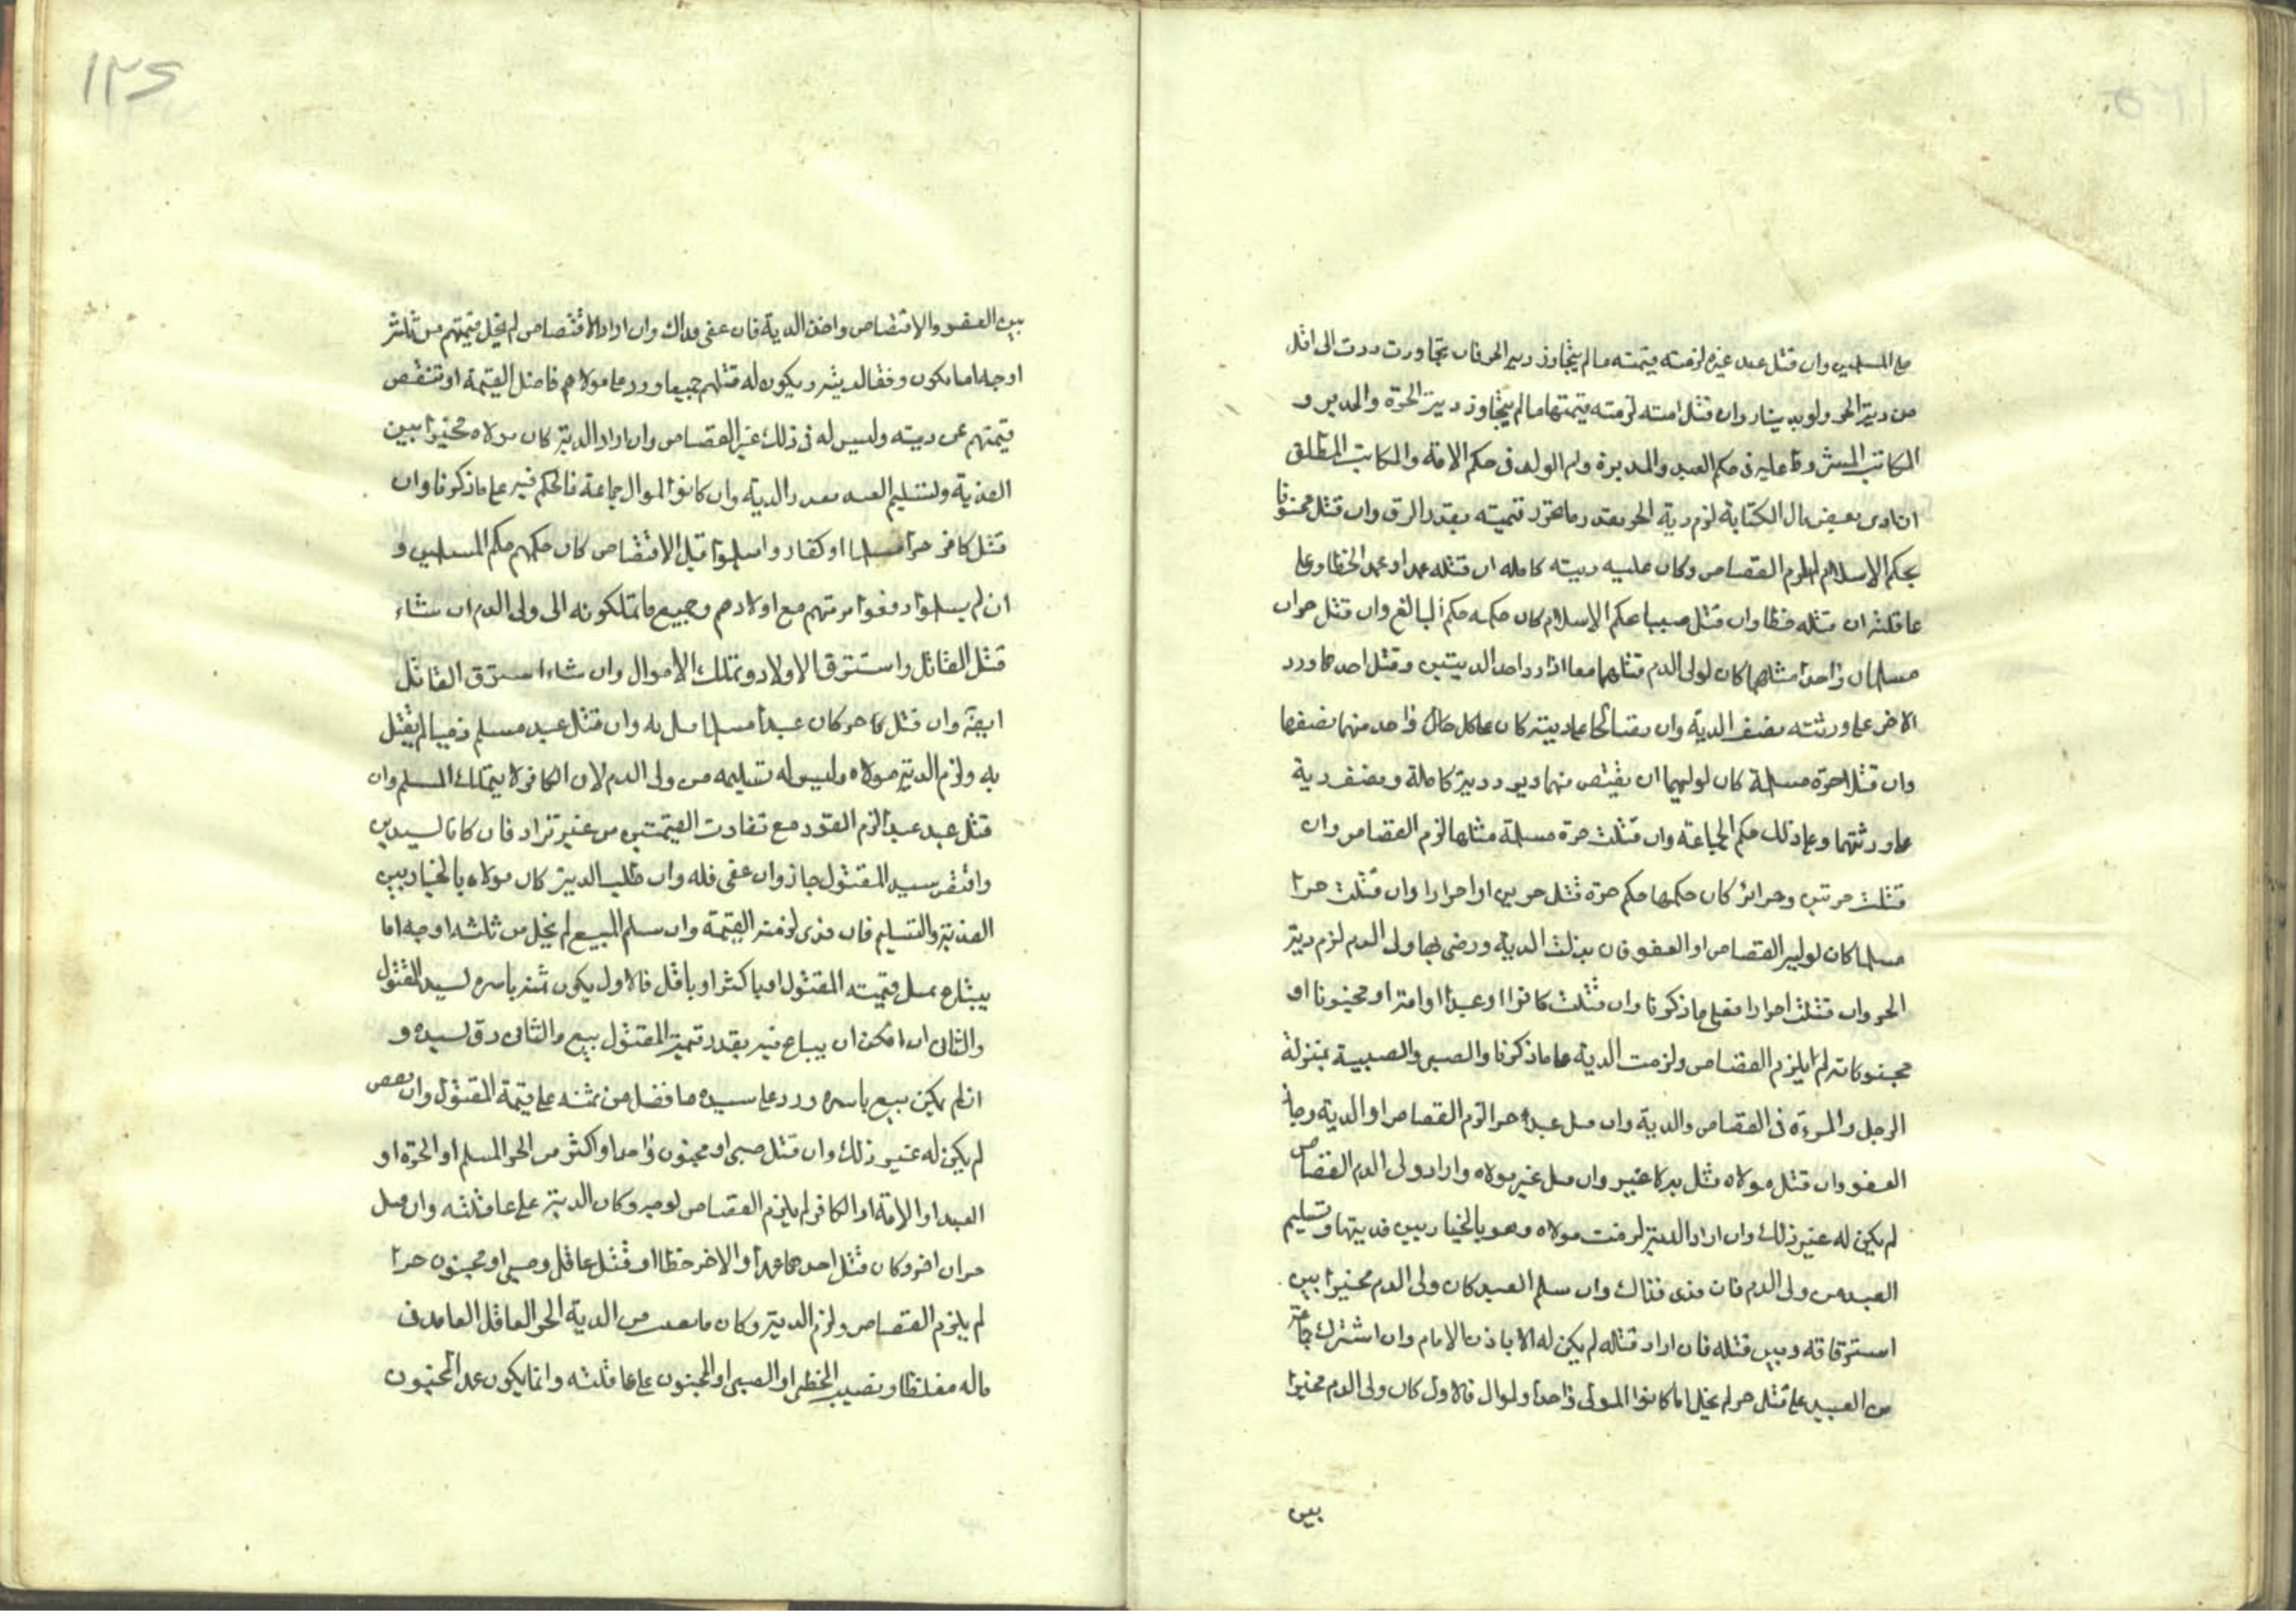 على المسلمين وان قتل عبد غيره لزمته قيمته ما لم يتجاوز دية الحر فان تجاوزت ردت الى اقل
من دية الحر ولو بدينار وان قتل امته لزمته قيمتها ما لم يتجاوز دية الحرة والمدبر و
المكاتب المشروط عليه فى حكم العبد والمدبرة وام الولد فى حكم الامة والمكاتب المطلق
ان ادى بعض مال الكتابة لزم دية الحر بقدر ما تحرر قيمته بقدر الرق وان قتل مجنونا
بحكم الاسلام لم يلزم القصاص وكان عليه ديته كاملة ان قتله عمدا وعمد الخطا وعلى
عاقلته ان قتله خطا وان قتل صبيا بحكم الاسلام كان حكمه حكم البالغ وان قتل حران
مسلمان واحدا مثلهما كان لولى الدم قتلهما معا اذا رد احد الديتين وقتل احدهما ورد
الاخر على ورثته نصف الدية وان تصالحا على ديته كان على كل حال واحد منهما نصفها
وان قتلا حرة مسلمة كان لوليهما ان يقتص منهما ويرد دية كاملة ونصف دية
على ورثتهما وعلى ذلك حكم الجماعة وان قتلت حرة مسلمة مثلها لزم القصاص وان
قتلت حرتين وحرائر كان حكمها حكم حرة قتل حرين او احرارا وان قتلت حرا
مسلما كان لوليه القصاص او العفو فان بذلت الدية ورضى بها ولى الدم لزم دية
الحر وان قتلت احرارا فعلى ما ذكرنا وان قتلت كافرا او عبدا او امة او مجنونا او
مجنونة لم يلزم القصاص ولزمت الدية على ما ذكرنا والصبى والصبية بمنزلة
الرجل والمرءة فى القصاص والدية وان قتل عبد حرا لزم القصاص او الدية وجاز
العفو وان قتل مولاه قتل به لا غير وان قتل غير مولاه واراد ولى الدم القصاص
لم يكن له غير ذلك وان اراد الدية لزمت مولاه وهو بالخيار بين فديتها وتسليم
العبد من ولى الدم فان فدى فذاك وان سلم العبد كان ولى الدم مخيرا بين
استرقاقه وبين قتله فان اراد قتله لم يكن له الا باذن الامام وان اشترك جماعة
من العبيد على قتل حر لم يخل اما كانوا لمولى واحد او لموال فالاول كان ولى الدم مخيرا
بين
١٢٤
بين العفو والاقتصاص واخذ الدية فان عفى فذاك وان اراد الاقتصاص لم يخل قيمتهم من ثلثة
اوجه اما يكون وفقا لديته ويكون له قتلهم جميعا ورد على مولاهم فاضل القيمة او تنقص
قيمتهم عن ديته وليس له فى ذلك غير القصاص وان اراد الدية كان مولاه مخيرا بين
الفدية ولتسليم العبد بقدر الدية وان كانوا لموال جماعة فالحكم فيه على ما ذكرنا وان
قتل كافر حرا مسلما او كفار واسلموا قبل الاقتصاص كان حكمهم حكم المسلمين و
ان لم يسلموا دفعوا برمتهم مع اولادهم وجميع ما تملكونه الى ولى الدم ان شاء
قتل القاتل واسترق الاولاد وتملك الاموال وان شاء استرق القاتل
ايضا وان قتل كافر كان عبدا مسلما قتل به وان قتل عبد مسلم ذميا لم يقتل
به ولزم الدية مولاه وليس له تسليمه من ولى الدم لان الكافر لا يتملك المسلم وان
قتل عبد عبدا لزم القود مع تفاوت القيمتين من غير تراد فان كانا لسيدين
واتفق سيد المقتول جاز وان عفى فله وان طلب الدية كان مولاه بالخيار بين
الفدية والتسليم فان فدى لزمته القيمة وان سلم المبيع لم يخل من ثلثة اوجه اما
يبتاع بمثل قيمته المقتول او باكثر او باقل فالاول يكون ثمنه باسره لسيد المقتول
والثانى ان امكن ان يباع منه بقدر قيمة المقتول بيع والثانى رق لسيده و
ان لم يكن بيع باسره ورد على سيده ما فضل من ثمنه على قيمة المقتول وان نقص
لم يكن له غير ذلك وان قتل صبى او مجنون واحدا واكثر من الحر المسلم او الحرة او
العبد او الامة او الكافر لم يلزم القصاص لوجه وكان الدية على عاقلته وان قتل
حران اخر وكان قتل احدهما عمدا والاخر خطا او قتل عاقل وصبى او مجنون حرا
لم يلزم القصاص ولزم الدية وكان ما يصيب من الدية الحر العاقل العامد فى
ماله مغلظا ونصيب المخطى او الصبى او المجنون على عاقلته وانما يكون عمد المجنون